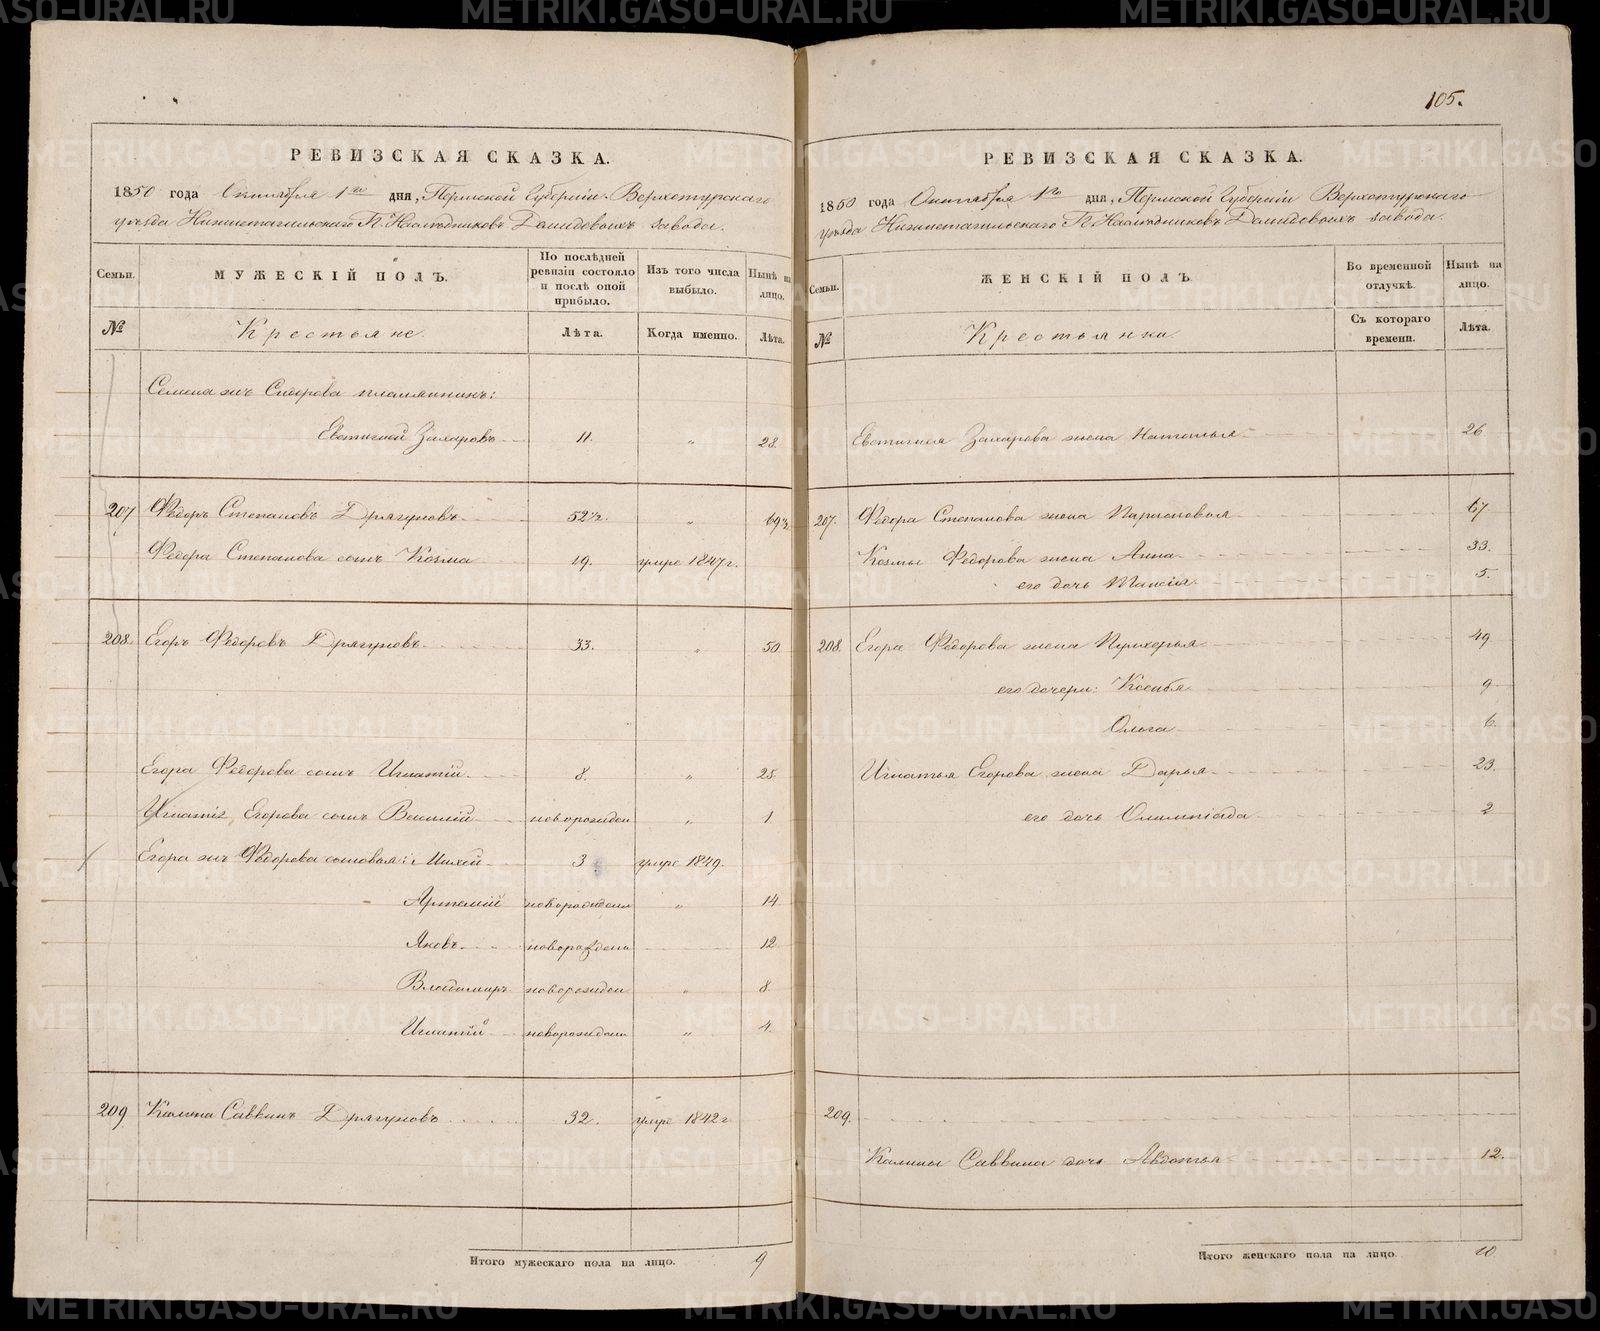 105.
РЕВИЗСКАЯ СКАЗКА.
1850 года Октября 1го дня, Пермской Губерніи Верхотурскаго
уезда Нижнетагильскаго Г.П. Наследниковъ Демидовыхъ завода.
Семьи.
МУЖЕСКІЙ ПОЛЪ.
По последней ревизіи состояло и после оной прибыло.
Изъ того числа выбыло.
Ныне на лицо.
№
Крестьяне.
Лета.
Когда именно.
Лета.
Семена жъ Сидорова племянникъ:
Евстигней Захаровъ 11. „ 28.
207 Ѳедоръ Степановъ Дрягуновъ 52½. „ 69½
Ѳедора Степанова сынъ Козма 19. умре 1847 г.
208. Егоръ Ѳедоровъ Дрягуновъ 33. „ 50.
Егора Ѳедорова сынъ Игнатій 8. „ 25
Игнатія Егорова сынъ Василій новорожден „ 1.
Егора жъ Ѳедорова сыновья: Михей 3 умре 1849.
Артемій новорожденъ „ 14
Яковъ новорожденъ 12
Владимиръ новорожден „ 8.
Игнатій новорожденъ „ 4.
209. Калина Саввинъ Дрягуновъ 32. умре 1842 г
Итого мужескаго пола на лицо. 9
РЕВИЗСКАЯ СКАЗКА.
1850 года Октября 1го дня, Пермской Губерніи Верхотурскаго
уезда Нижнетагильскаго Г.П. Наследниковъ Демидовыхъ завода.
Семьи.
ЖЕНСКІЙ ПОЛЪ.
Во временной отлучке.
Ныне на лицо.
№
Крестьянки.
Съ котораго времени.
Лета.
Евстигнея Захарова жена Наталья 26
207. Ѳедора Степанова жена Парасковья 67
Козмы Ѳедорова жена Анна 33.
его дочь Таисія 5.
208. Егора Ѳедорова жена Пульхерья 49
его дочери: Ксенья 9
Ольга 6.
Игнатья Егорова жена Дарья 23.
его дочь Олимпіада 2
209.
Калины Саввина дочь Авдотья 12.
Итого женскаго пола на лицо. 10
METRIKI.GASO-URAL.RU